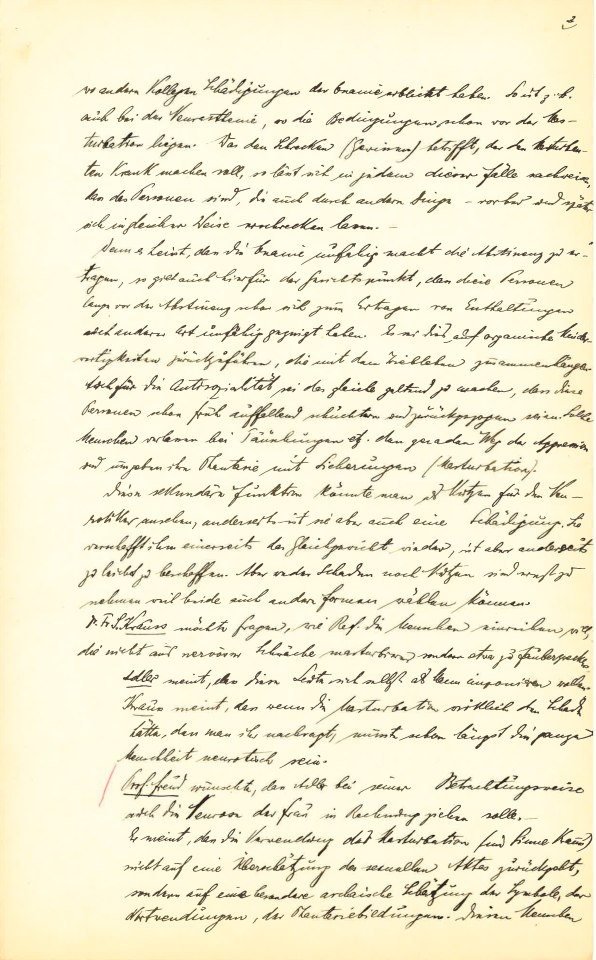 3
wo andern Kollegen Schädigungen der Onanie erblickt haben. So ist z. b.
auch bei der Neurasthenie, wo die Bedingungen schon vor der Mas-
turbation liegen. Was den Schrecken (Gewissen) betrifft, der den Masturban-
ten krank machen soll, so lässt sich in jedem dieser Fälle nachweisen,
dass das Personen sind, die auch durch andern Dinge – vorher und später
sich in gleicher Weise erschrecken lassen. –
Wenn es heisst, dass die Onanie unfähig macht die Abstinenz zu er-
tragen, so gilt auch hierfür der Gesichtspunkt, dass diese Personen
lange vor der Abstinenz schon sich zum Ertragen von Enthaltungen
auch anderer Art unfähig gezeigt haben. Es sei dies auf organische Minder-
wertigkeiten zurückzuführen, die mit dem Triebleben zusammenhängen
Auch für die Autosexualität sei das gleiche geltend zu machen, dass diese
Personen schon früh auffallend schüchtern und zurückgezogen seien. Solche
Menschen verlassen bei etc. den geraden Weg der Aggression
und umgeben ihre Phantasie mit Sicherungen (Masturbation).
Diese sekundäre Funktion könnte man als Nutzen für den Neu-
rotiker ansehen, anderseits ist sie aber auch eine Schädigung. Sie
verschafft ihm einerseits das Gleichgewicht wieder, ist aber anderseits
zu leicht zu beschaffen. Aber weder Schaden noch Nutzen sind ernst zu
nehmen weil beide auch andere Formen wählen können.
Dr. Fr. S. Krauss möchte fragen, wie Ref. die Menschen einreihen will,
die nicht aus nervöser Schwäche masturbieren sondern etwa zu Zauberzwecken
Adler meint, dass diese Leute sich selbst als Mann imponieren wollen.
Krauss meint, dass wenn die Masturbation wirklich den Schaden
hätte, den man ihr nachsagt, müsste schon längst die ganze
Menschheit neurotisch sein.
Prof. Freud wünschte, dass Adler bei seiner Betrachtungsweise
auch die Neurosen der Frau in Rechnung ziehen solle. –
Er meint, dass die Verwendung der Masturbation (im Sinne Krauss)
nicht auf eine Überschätzung des sexuellen Aktes zurückgeht,
sondern auf eine besondere archaische Schätzung der Symbole, der
Wortwendungen, der Phantasiebildungen. Diesen Menschen